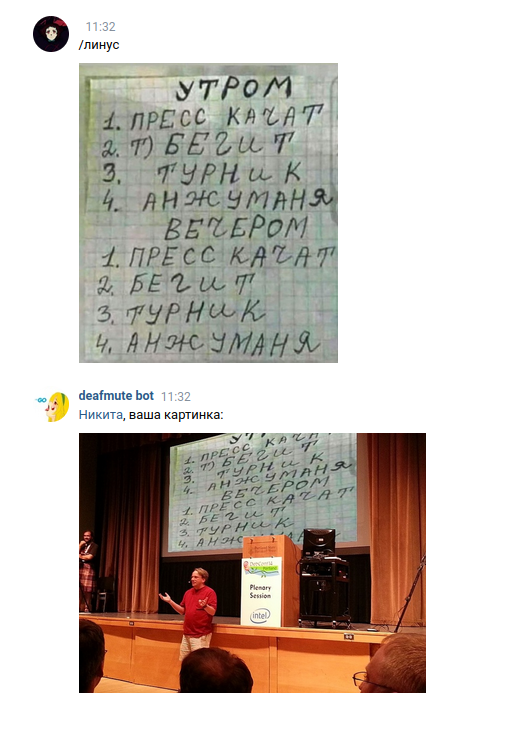 11:32
/линус
УТРОМ
1. ПРЕСС КАЧАТ
2. Т) БЕГИТ
3. ТУРНИК
4. АНЖУМАНЯ
ВЕЧЕРОМ
1. ПРЕСС КАЧАТ
2. БЕГИТ
3. ТУРНИК
4. АНЖУМАНЯ
deafmute bot 11:32
Никита, ваша картинка:
УТРОМ
1. ПРЕСС КАЧАТ
2. Т) БЕГИТ
3. ТУРНИК
4. АНЖУМАНЯ
ВЕЧЕРОМ
1. ПРЕСС КАЧАТ
2. БЕГИТ
3. ТУРНИК
4. АНЖУМАНЯ
Plenary
Session
intel